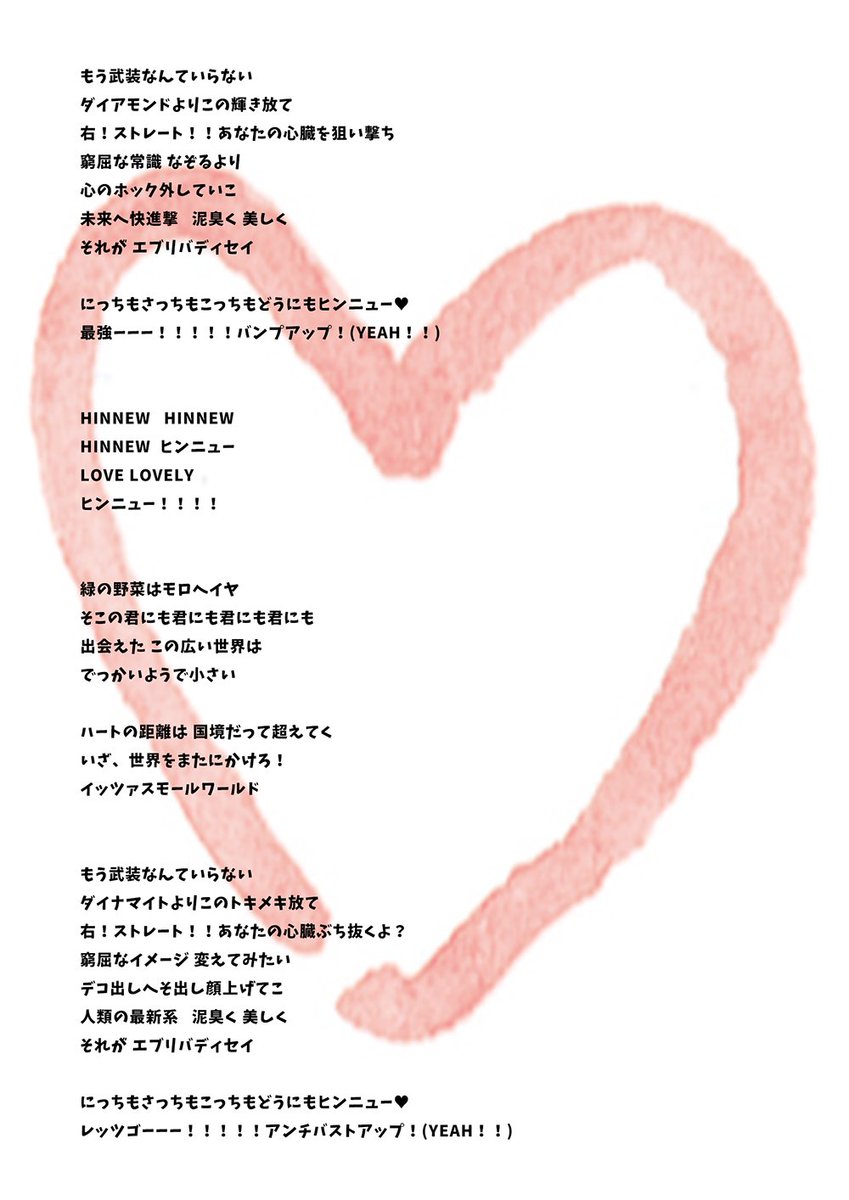 もう武装なんていらない
ダイアモンドよりこの輝き放て
右！ストレート！！あなたの心臓を狙い撃ち
窮屈な常識 なぞるより
心のホック外していこ
未来へ快進撃　泥臭く 美しく
それが エブリバディセイ
にっちもさっちもこっちもどうにもヒンニュー♥
最強ーーー！！！！！バンプアップ！(YEAH！！)
HINNEW　HINNEW
HINNEW ヒンニュー
LOVE LOVELY
ヒンニュー！！！！
緑の野菜はモロヘイヤ
そこの君にも君にも君にも君にも
出会えた この広い世界は
でっかいようで小さい
ハートの距離は 国境だって超えてく
いざ、世界をまたにかけろ！
イッツァスモールワールド
もう武装なんていらない
ダイナマイトよりこのトキメキ放て
右！ストレート！！あなたの心臓ぶち抜くよ？
窮屈なイメージ 変えてみたい
デコ出しへそ出し顔上げてこ
人類の最新系　泥臭く 美しく
それが エブリバディセイ
にっちもさっちもこっちもどうにもヒンニュー♥
レッツゴーーー！！！！！アンチバストアップ！(YEAH！！)